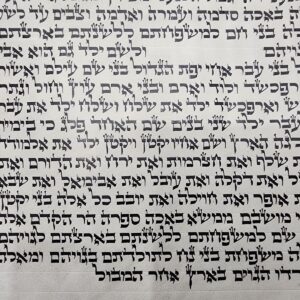 באכה סדמה ועמרה ואדמה וצבים עד לשע
בני חם למשפחתם ללשנתם בארצתם
ולשם ילד גם הוא אבי
בני עבר אחי יפת הגדול בני שם עילם ואשור
ולוד וארם ובני ארם עוץ וחול וגתר
וארפכשד ילד את שלח ושלח ילד את עבר
ילד שני בנים שם האחד פלג כי בימיו
הארץ ושם אחיו יקטן ויקטן ילד את אלמודד
שלף ואת חצרמות ואת ירח ואת הדורם ואת
ואת דקלה ואת עובל ואת אבימאל ואת שבא
אופר ואת חוילה ואת יובב כל אלה בני
מושבם ממשא באכה ספרה הר הקדם אלה
שם למשפחתם ללשנתם בארצתם לגויהם
משפחת בני נח לתולדתם בגויהם ומאלה
הגוים בארץ אחר המבול